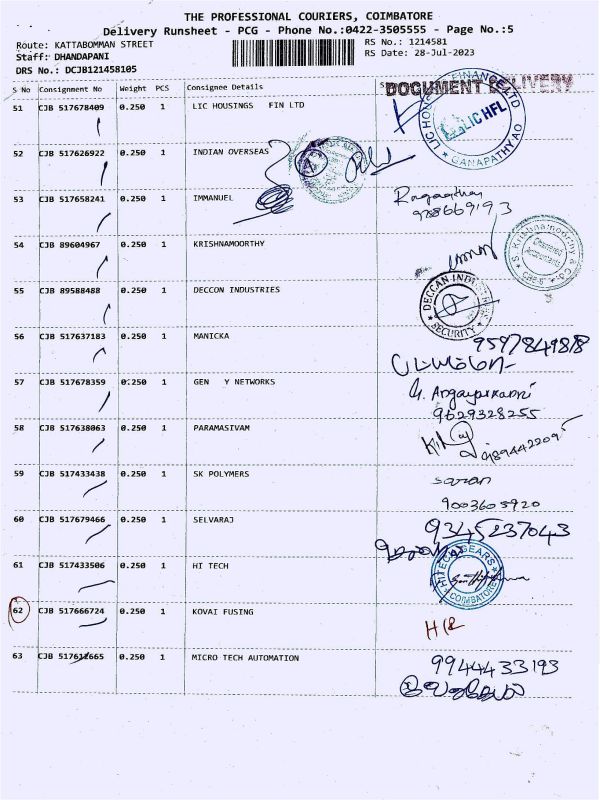 THE PROFESSIONAL COURIERS, COIMBATORE
Delivery Runsheet - PCG - Phone No.:0422-3505555 - Page No.:5
Route: KATTABOMMAN STREET
Staff: DHANDAPANI
DRS No.: DCJB121458105
RS No.: 1214581
RS Date: 28-Jul-2023
S No Consignment No Weight PCS Consignee Details
DOCUMENT DELIVERY
51 CJB 517678409 0.250 1 LIC HOUSINGS FIN LTD
LIC HOUSING FINANCE LTD
LIC HFL
GANAPATHY AO
52 CJB 517626922 0.250 1 INDIAN OVERSEAS
53 CJB 517658241 0.250 1 IMMANUEL
54 CJB 89604967 0 0.250 1 KRISHNAMOORTHY
S. Krishnamoorthy & Co.
Chartered Accountants
CBE-5
55 CJB 89588488 0.250 1 DECCON INDUSTRIES
DECCAN INDUSTRIES
SECURITY
56 CJB 517637183 0.250 1 MANICKA
9597849818
57 CJB 517678359 0.250 1 GEN Y NETWORKS
9629328255
58 CJB 517638063 0.250 1 PARAMASIVAM
59 CJB 517433438 0.250 1 SK POLYMERS
saran
9003605920
60 CJB 517679466 0.250 1 SELVARAJ
9345237043
61 CJB 517433506 0.250 1 HI TECH
HITECH GEARS
COIMBATORE
62 CJB 517666724 0.250 1 KOVAI FUSING
63 CJB 517612665 0.250 1 MICRO TECH AUTOMATION
9944433193